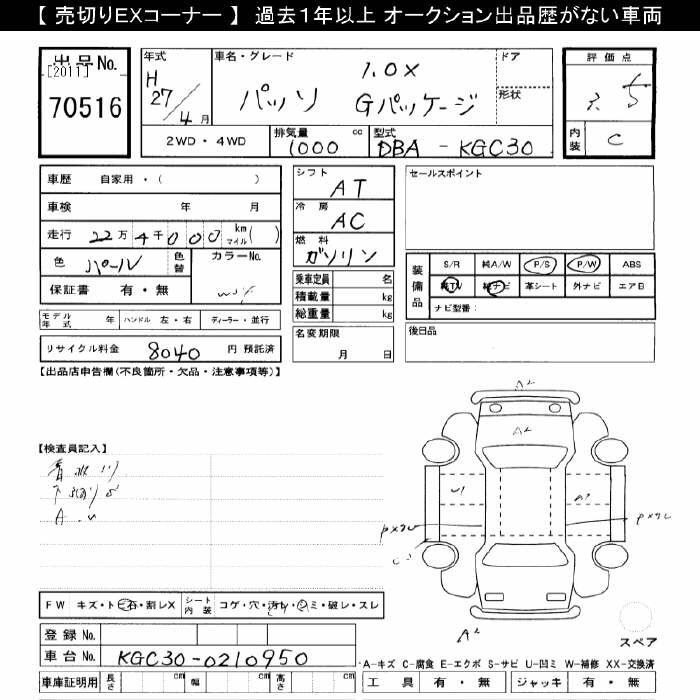 【 売切りEXコーナー 】 過去1年以上 オークション出品歴がない車両
出品 No.
[2011]
70516
年式
H
27/4月
車名・グレード
1.0X
パッソ Gパッケージ
ドア
形状
評価点
3.5
内装
C
2WD・4WD
排気量 cc
1000
型式
DBA - KGC30
車歴 自家用・( )
車検 年 月
走行 22万4千000 km マイル( )
色 パール 色替 カラーNo.
W24
保証書 有・無
シフト
AT
冷房
AC
燃料
ガソリン
乗車定員 名
積載量 kg
総重量 kg
名変期限
月 日
セールスポイント
装備品
S/R 純A/W P/S P/W ABS
純TV 純ナビ 革シート 外ナビ エアB
ナビ型番:
後日品
モデル年式 年 ハンドル 左・右 ディーラー・並行
リサイクル料金 8040 円 預託済
【出品店申告欄(不良箇所・欠品・注意事項等)】
【検査員記入】
A2
A2
U1
A1
PX2U
PX2U
A2
FW キズ・トビ石・割レX シート内装 コゲ・穴・汚レ・シミ・破レ・スレ
登録 No.
車台 No. KGC30-0210950
車庫証明用 長さ cm 幅 cm 高さ cm
スペア
A-キズ C-腐食 E-エクボ S-サビ U-凹ミ W-補修 XX-交換済
工具 有・無 ジャッキ 有・無